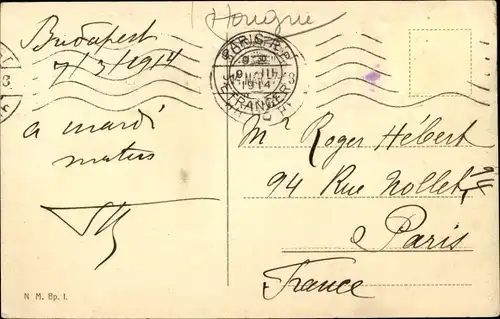 Hongrie
Budapest
7/3/1914
a mardi
matin
PARIS R.P.
9 III
1914
ETRANGER
Mr Roger Hébert
94 Rue Nollet
94
à Paris
France
N M. Bp. I.